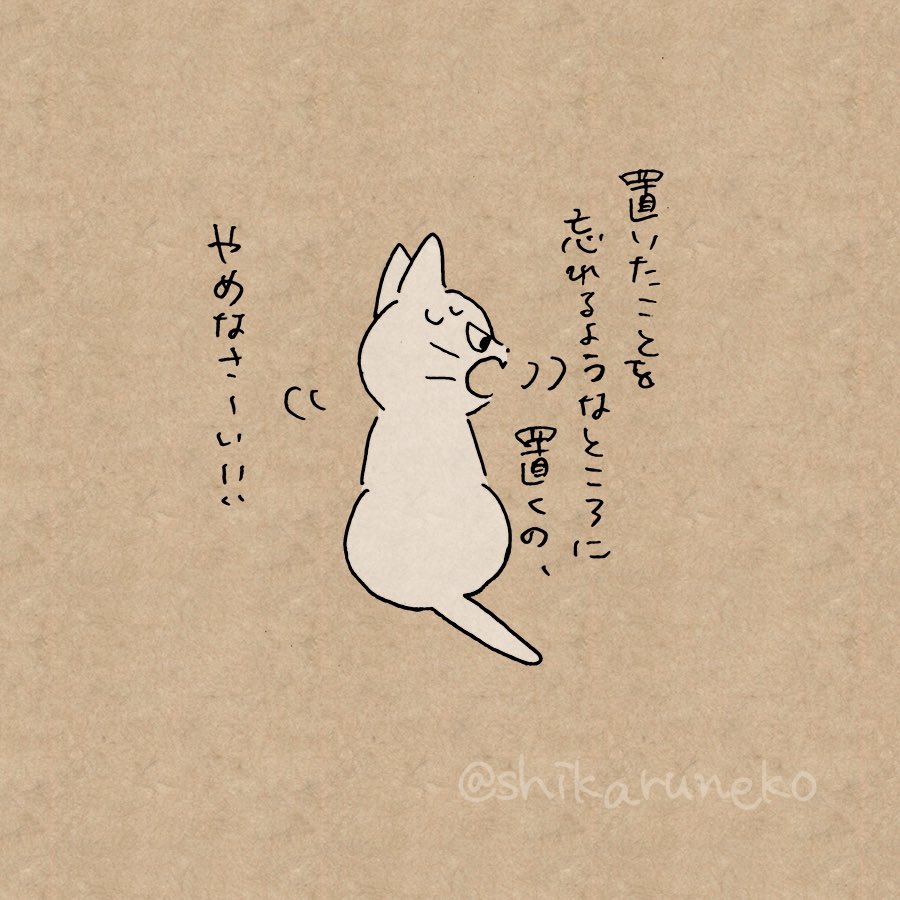 置いたことを
忘れるようなところに
置くの、
やめなさーいいい
@shikaruneko